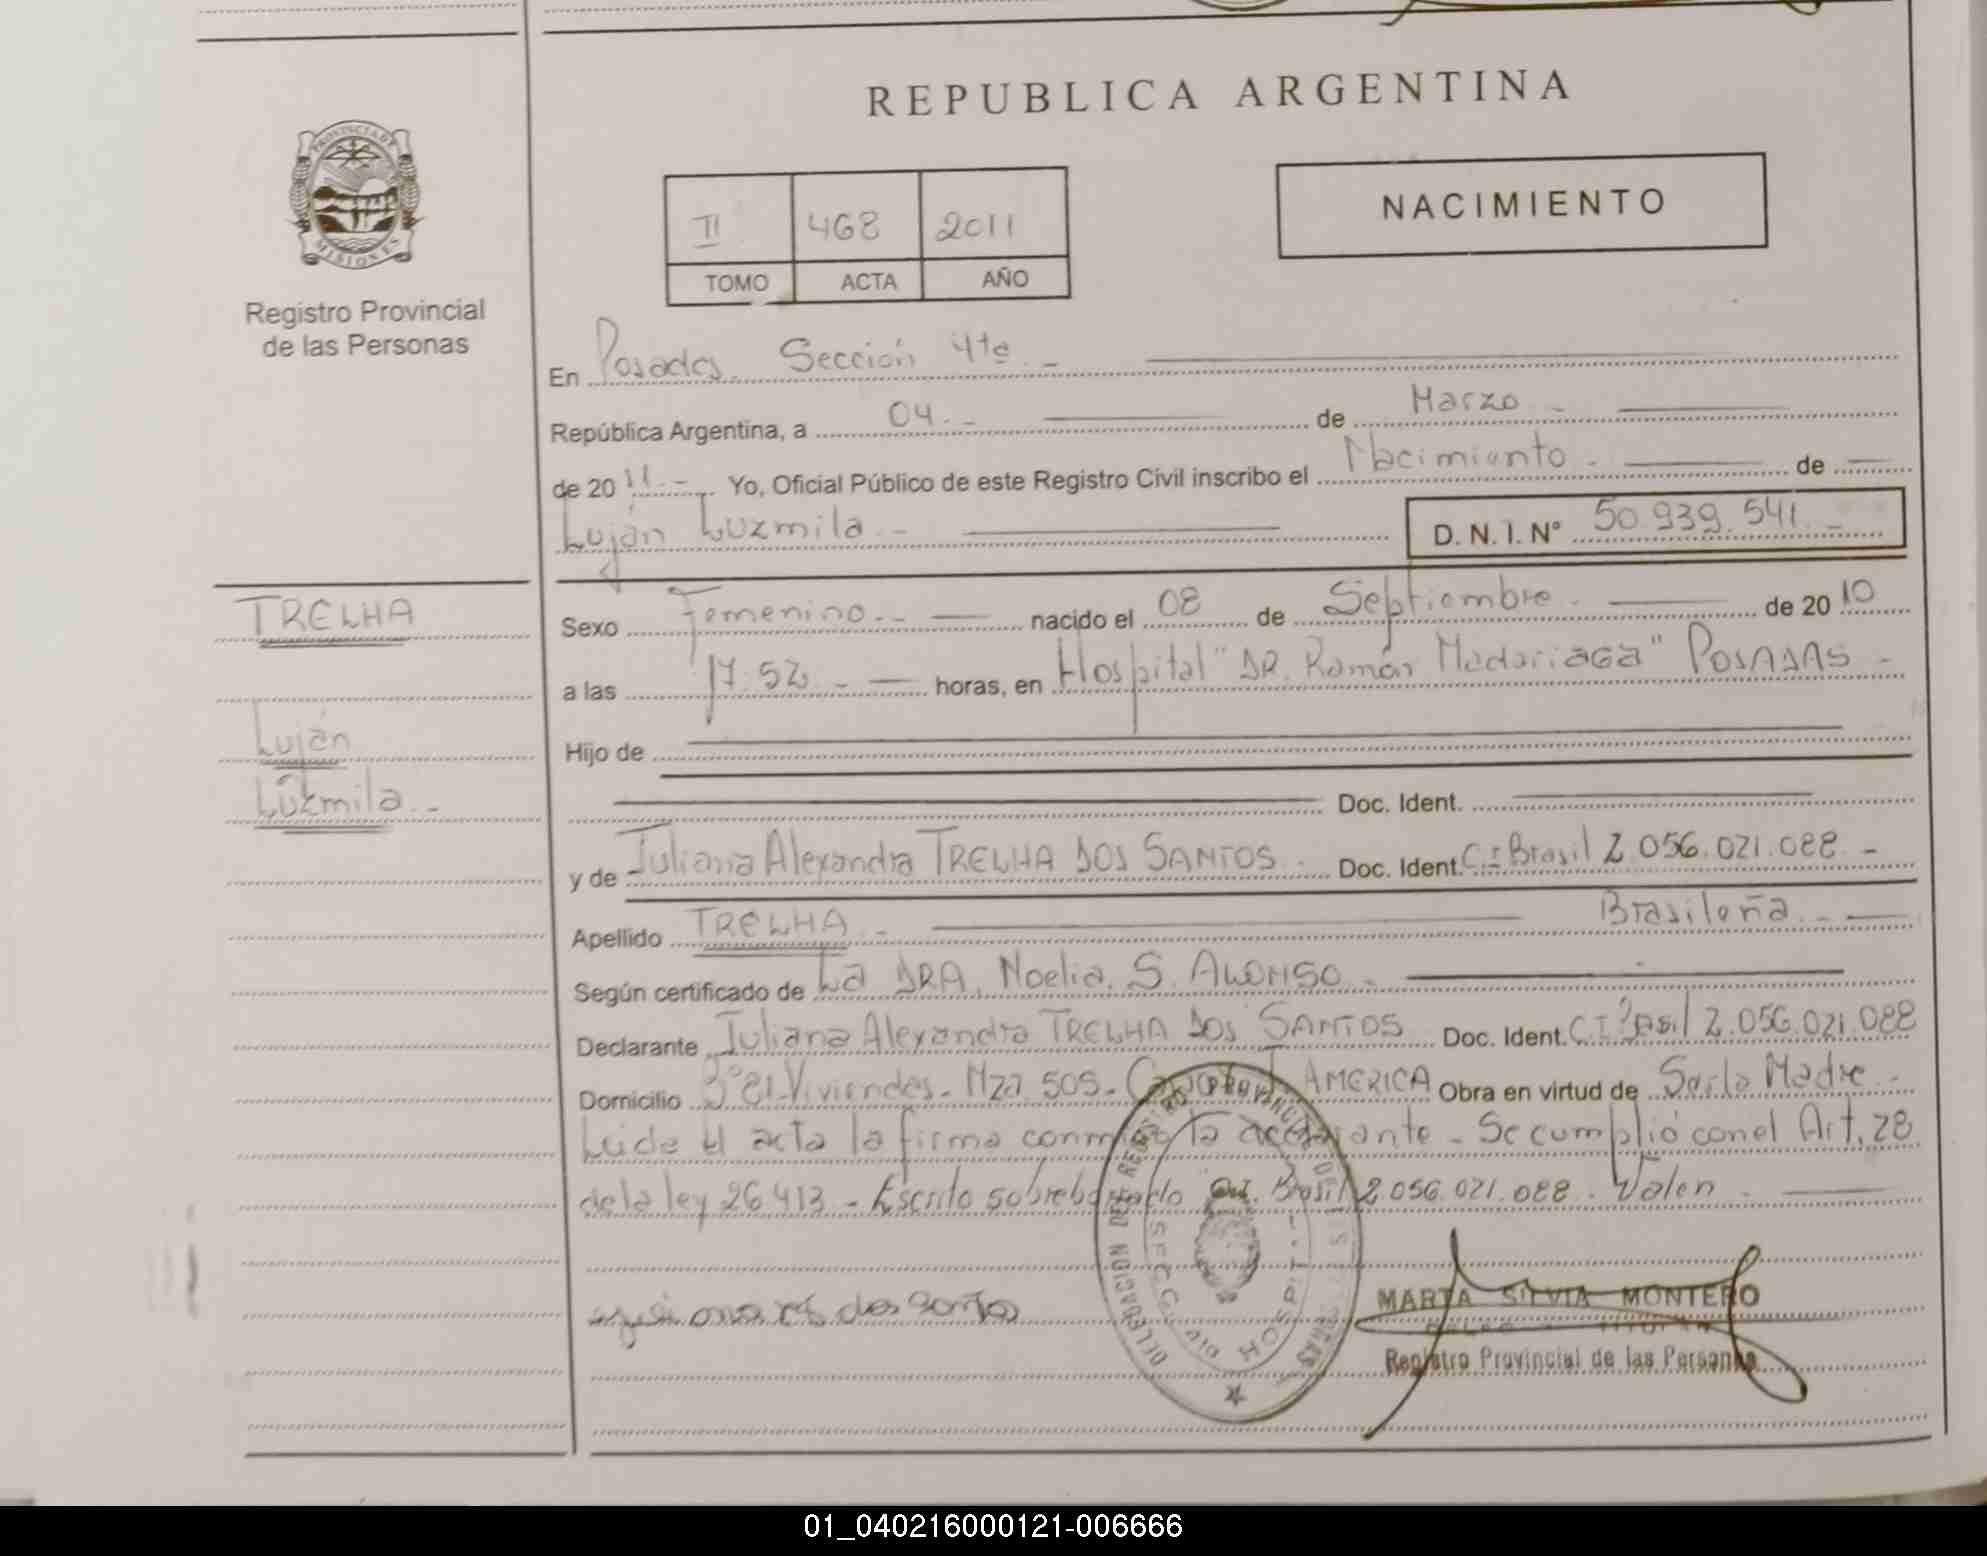 REPUBLICA ARGENTINA
PROVINCIA DE MISIONES
Registro Provincial
de las Personas
II 468 2011
TOMO ACTA AÑO
NACIMIENTO
En Posadas. Sección 4ta. -
República Argentina, a 04. - de Marzo -
de 20 11. - Yo, Oficial Público de este Registro Civil inscribo el Nacimiento - de
Luján Luzmila. - D. N. I. Nº 50.939.541. -
TRELHA
Luján
Luzmila. -
Sexo Femenino. - nacido el 08 de Septiembre. de 20 10
a las 17.52. - horas, en Hospital "DR. Ramón Madariaga" POSADAS -
Hijo de
Doc. Ident.
y de Juliana Alexandra TRELHA DOS SANTOS. Doc. Ident. C.I Brasil 2.056.021.088 -
Apellido TRELHA. - Brasileña. -
Según certificado de La DRA. Noelia. S. ALONSO. -
Declarante Juliana Alexandra TRELHA DOS SANTOS Doc. Ident. C.I 2.056.021.088
Domicilio 81 Viviendas. Mza 505. AMERICA Obra en virtud de Ser la Madre. -
Leida el acta la firma conmigo la declarante - Se cumplió con el Art. 28
de la ley 26.413 - Escrito sobreborrado Brasil 2.056.021.088. Valen. -
dos Santos
DELEGACION DEL REGISTRO PROVINCIAL DE LAS PERSONAS
SECC. 4ta HOSPITAL
MARTA SILVIA MONTERO
Registro Provincial de las Personas
01_040216000121-006666